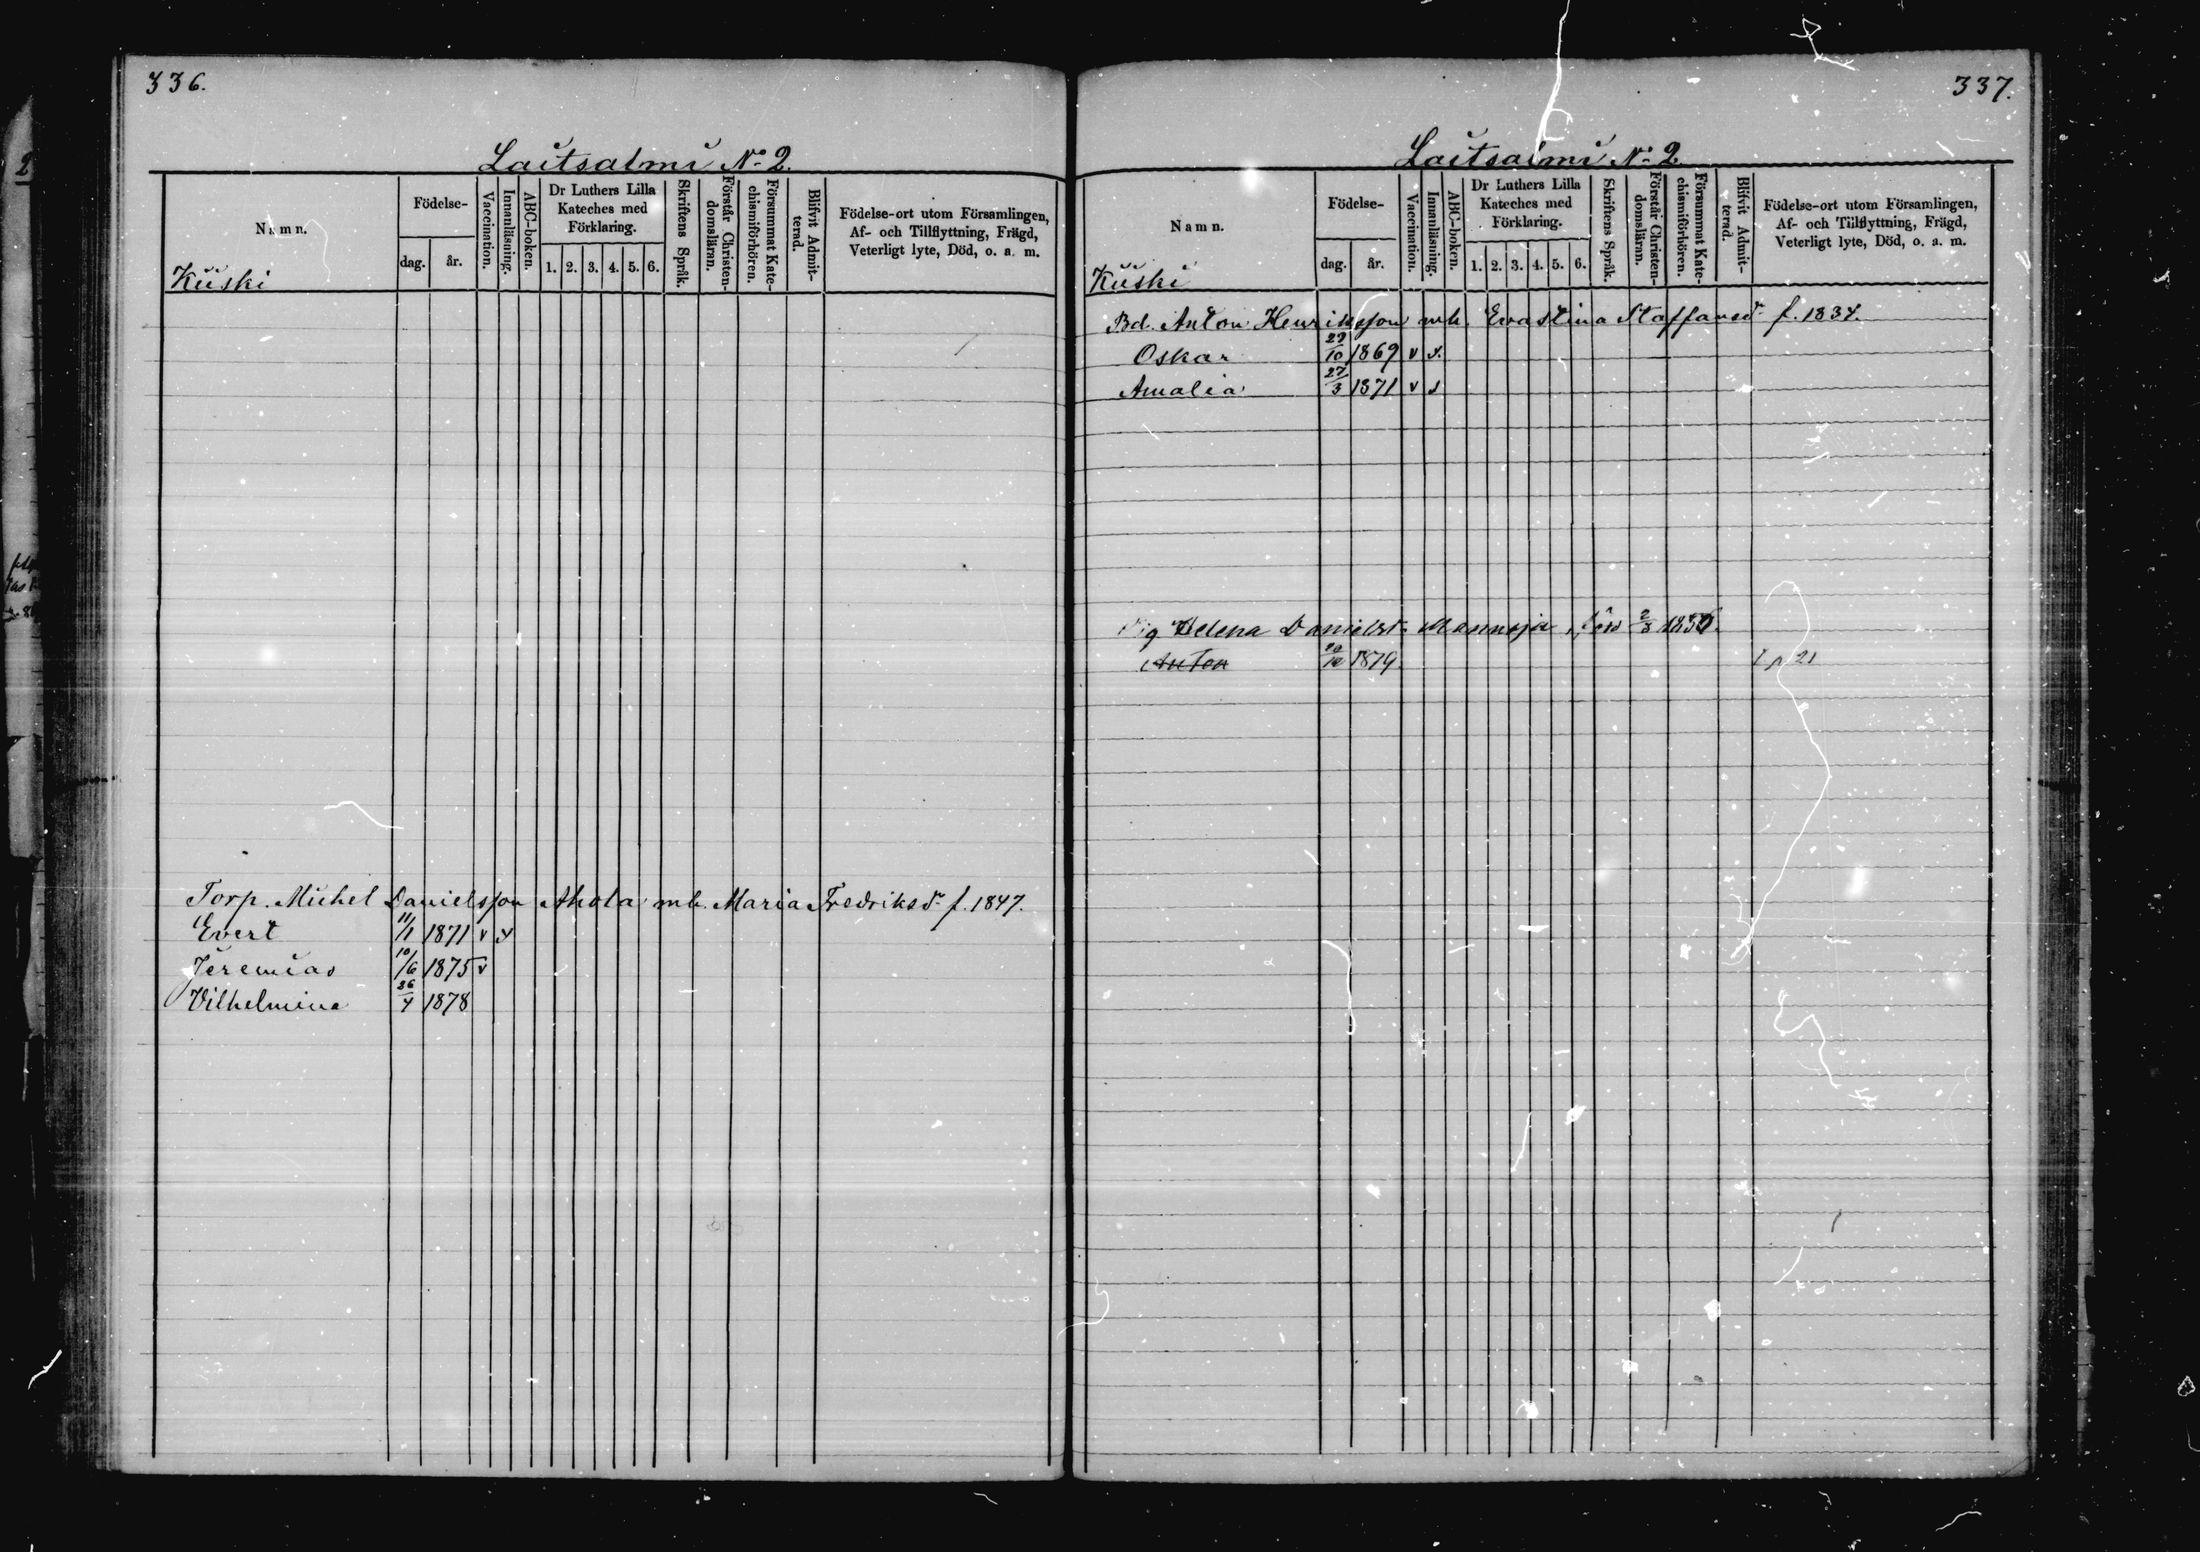 336.
Laitsalmi No 2.
Namn.
Födelse-
dag.
år.
Vaccination.
Innanläsning.
ABC-boken.
Dr Luthers Lilla
Kateches med
Förklaring.
1. 2. 3. 4. 5. 6.
Skriftens Språk.
Förstår Christen-
domsläran.
Försummat Kate-
chismiförhören.
Blifvit Admit-
terad.
Födelse-ort utom Församlingen,
Af- och Tillflyttning, Frägd,
Veterligt lyte, Död, o. a. m.
Kuski
Torp. Michel Danielsson Ahola mh. Maria Fredriksdr f. 1847.
Evert 11/1 1871 v
Jeremias 10/6 1875 v
Vilhelmina 26/4 1878
337.
Laitsalmi No 2
Namn.
Födelse-
dag.
år.
Vaccination.
Innanläsning.
ABC-boken.
Dr Luthers Lilla
Kateches med
Förklaring.
1. 2. 3. 4. 5. 6.
Skriftens Språk.
Förstår Christen-
domsläran.
Försummat Kate-
chismiförhören.
Blifvit Admit-
terad.
Födelse-ort utom Församlingen,
Af- och Tillflyttning, Frägd,
Veterligt lyte, Död, o. a. m.
Kuski
Bd. Anton Henriksson mh. Evastina Staffansdr f. 1834.
Oskar 29/10 1869 v
Amalia 27/3 1871 v
Pig Helena Danielsdr
Anton 1879 21